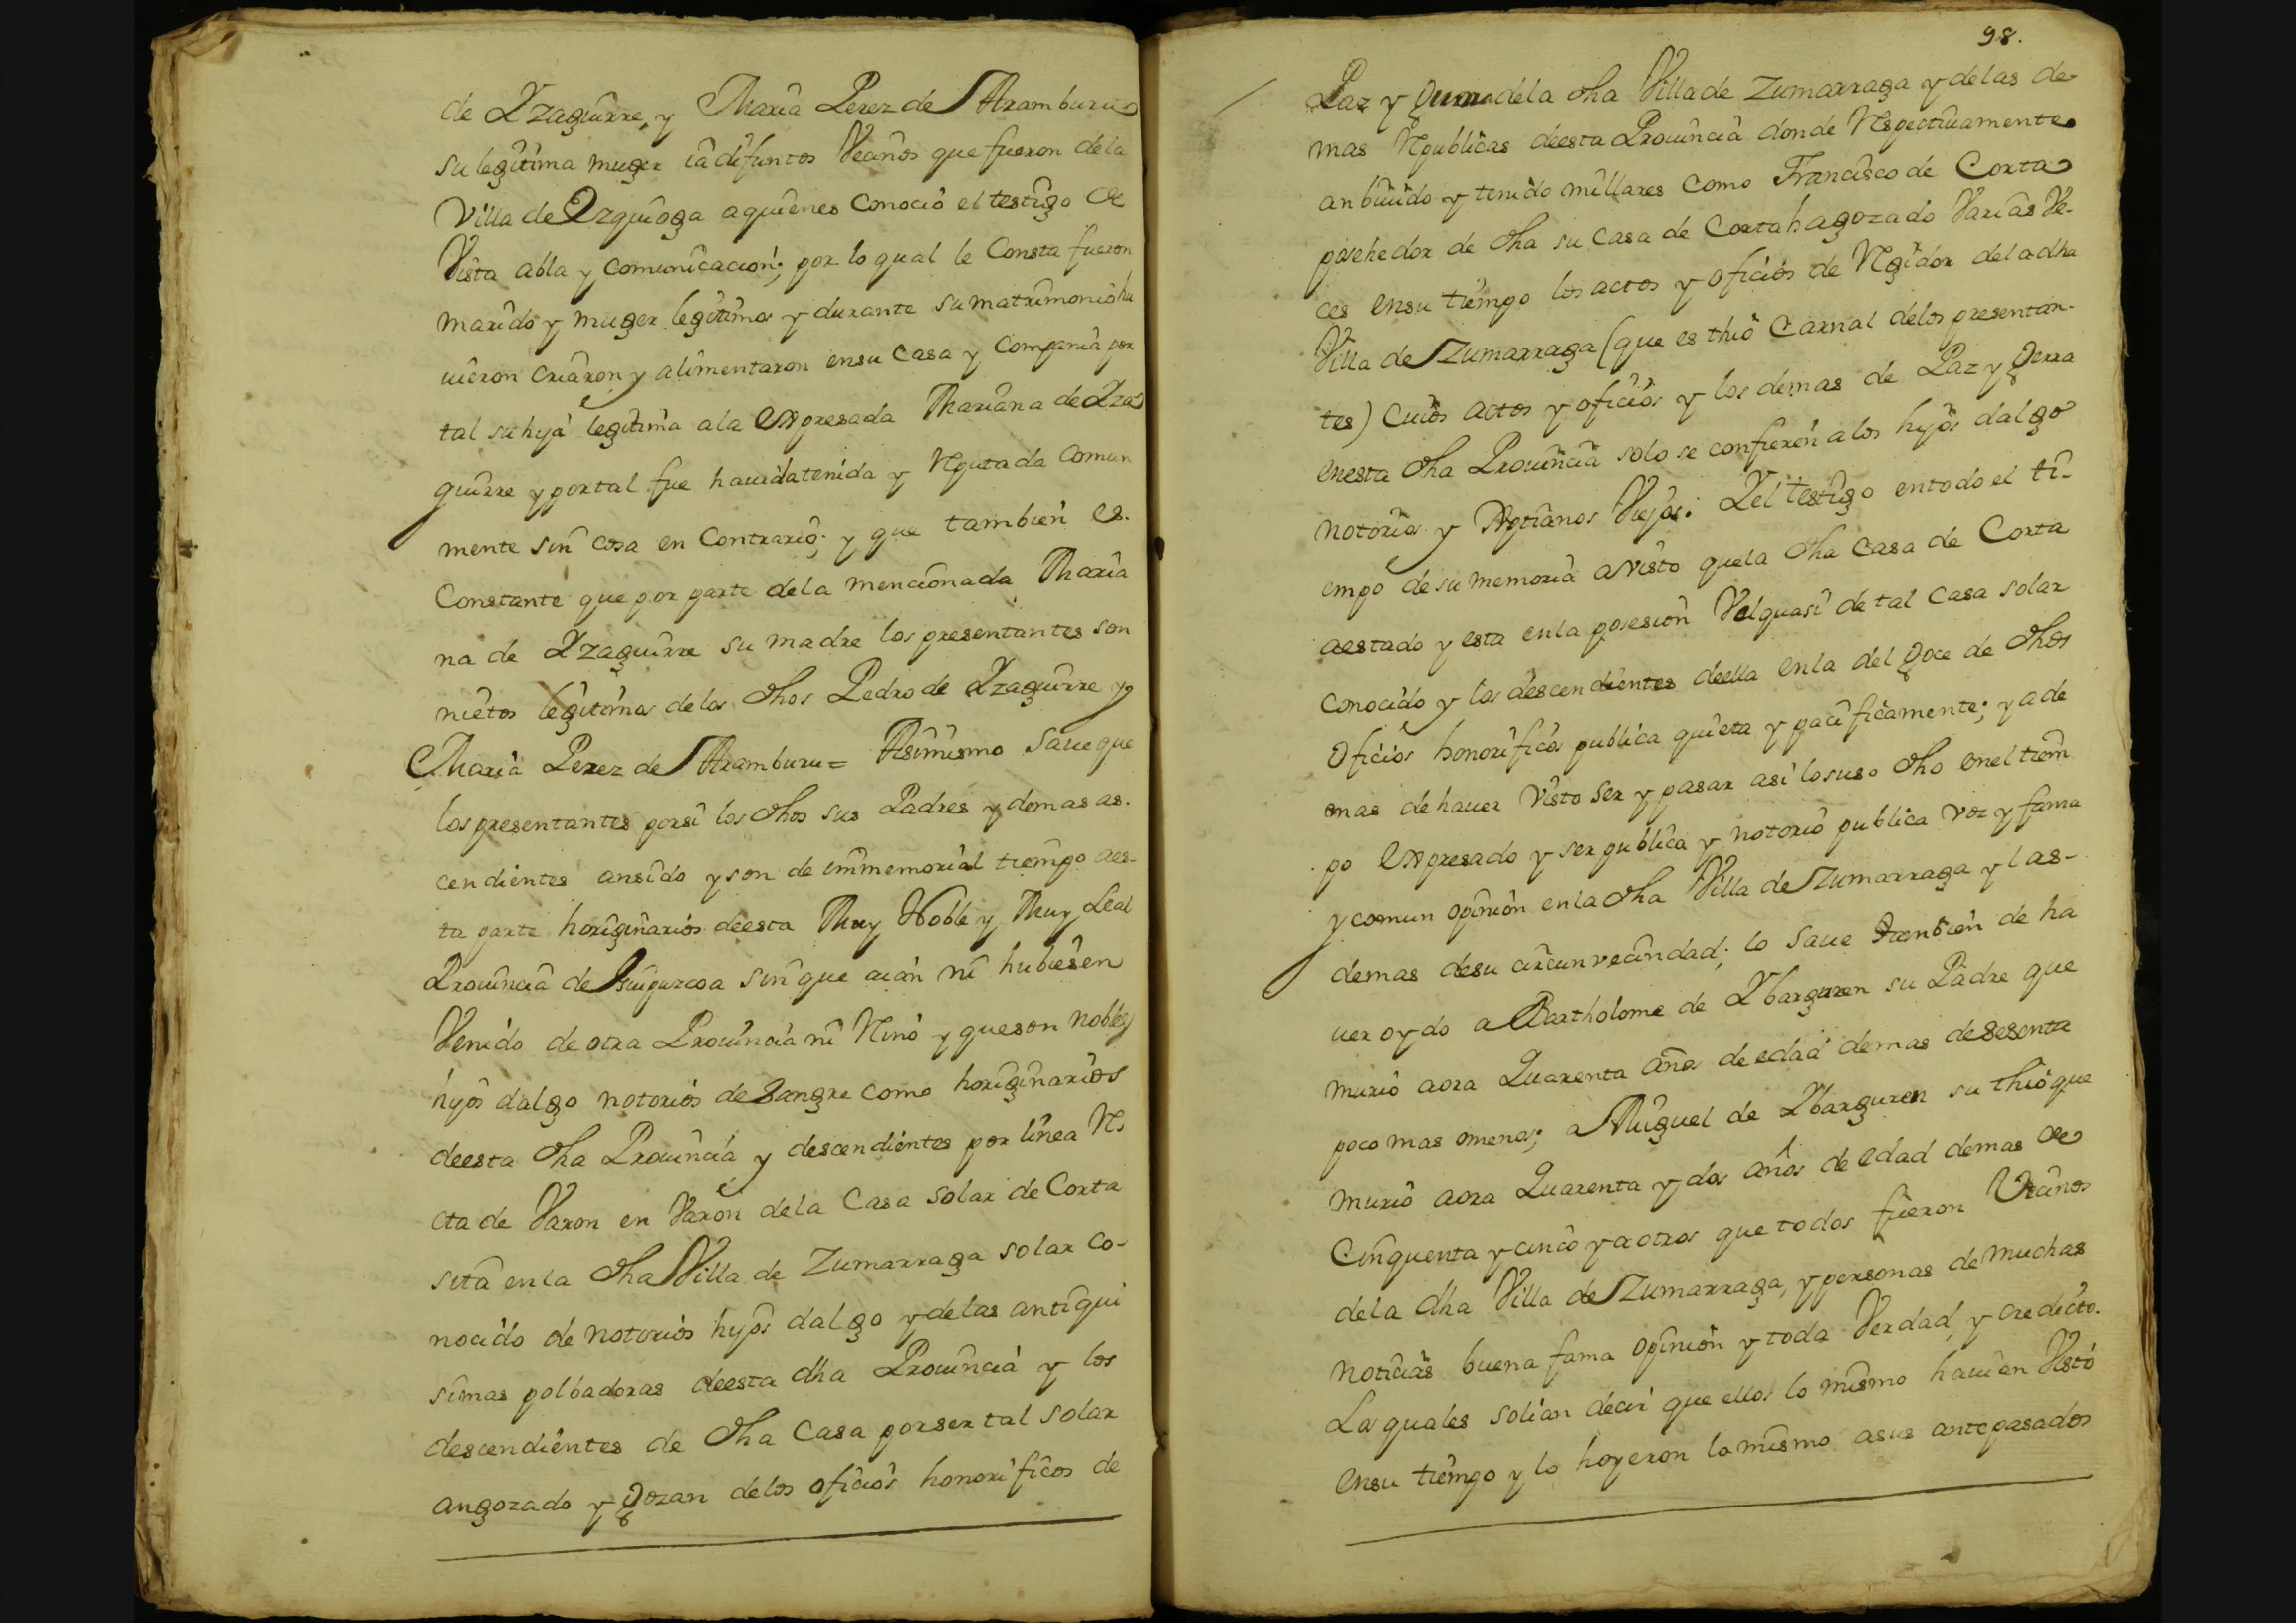 de Yzaguirre, y Maria Perez de Aramburu
su legitima muger ia difuntos Vecinos que fueron dela
Villa de Ezquioga aquienes Conocio el testigo de
Vista abla y Comunicacion; por lo qual le Consta fueron
marido y muger legitimos y durante su matrimonio hu
uieron criaron y alimentaron ensu Casa y Compania por
tal su hija legitima ala Expresada Mariana de Yza
guirre y portal fue hauida tenida y Reputada Comun
mente sin cosa en Contrario; y que tambien es.
Constante que por parte dela mencionada Maria
na de Yzaguirre su madre los presentantes son
nietos legitimos delos dhos Pedro de Yzaguirre y
Maria Perez de Aramburu = Asimismo Saue que
los presentantes porsi los dhos sus Padres y demas as.
cendientes ansido y son de immemorial tiempo aes-
ta parte horiginarios deesta Muy Noble y Muy Leal
Prouincia de Guipuzcoa sin que aian ni hubiesen
Venido de otra Prouincia ni Reino y que son nobles
hijos dalgo notorios de Sangre como horiginarios
deesta dha Prouincia y descendientes por linea Re
cta de Varon en Varon dela Casa Solar de Corta
sita en la dha Villa de Zumarraga solar co-
nocido de notorios hijos dalgo y delas antiqui
simas polbadoras deesta dha Prouincia y los
descendientes de dha Casa porser tal solar
angozado y gozan delos oficios honorificos de
98.
Paz y Guerra dela dha Villa de Zumarraga y delas de
mas Republicas deesta Prouincia donde Respectiuamente
an biuido y tenido millares Como Francisco de Corta
posehedor de dha su Casa de Corta hagozado Varias Ve-
ces ensu tiempo los actos y oficios de Regidor dela dha
Villa de Zumarraga (que es thio Carnal delos presentan-
tes) Cuios actos y oficios y los demas de Paz y Gerra
enesta dha Prouincia solo se confieren a los hijos dalgo
notorios y Xptianos Viejos: Yel testigo entodo el ti-
empo de su memoria avisto quela dha Casa de Corta
aestado y esta enla posesion Velquasi de tal Casa solar
Conocido y los descendientes deella enla del Goce de dhos
Oficios honorificos publica quieta y pacificamente; y ade
mas de hauer Visto ser y pasar asi losuso dho enel tiem
po Expresado y ser publica y notorio publica voz y fama
y comun opinion enla dha Villa de Zumarraga y las-
demas desu circunvecindad; lo Saue tambien de ha
uer oydo a Bartholome de Ybarguren su Padre que
murio aora Quarenta años de edad demas de sesenta
poco mas omenos; a Miguel de Ybarguren su thio que
murio aora Quarenta y dos años de edad demas de
Cinquenta y cinco y a otros que todos fueron Vecinos
dela dha Villa de Zumarraga, y personas de muchas
noticias buena fama opinion y toda Verdad y credicto.
Los quales solian decir que ellos lo mismo hauian Visto
ensu tiempo y lo hoyeron lo mismo asus antepasados